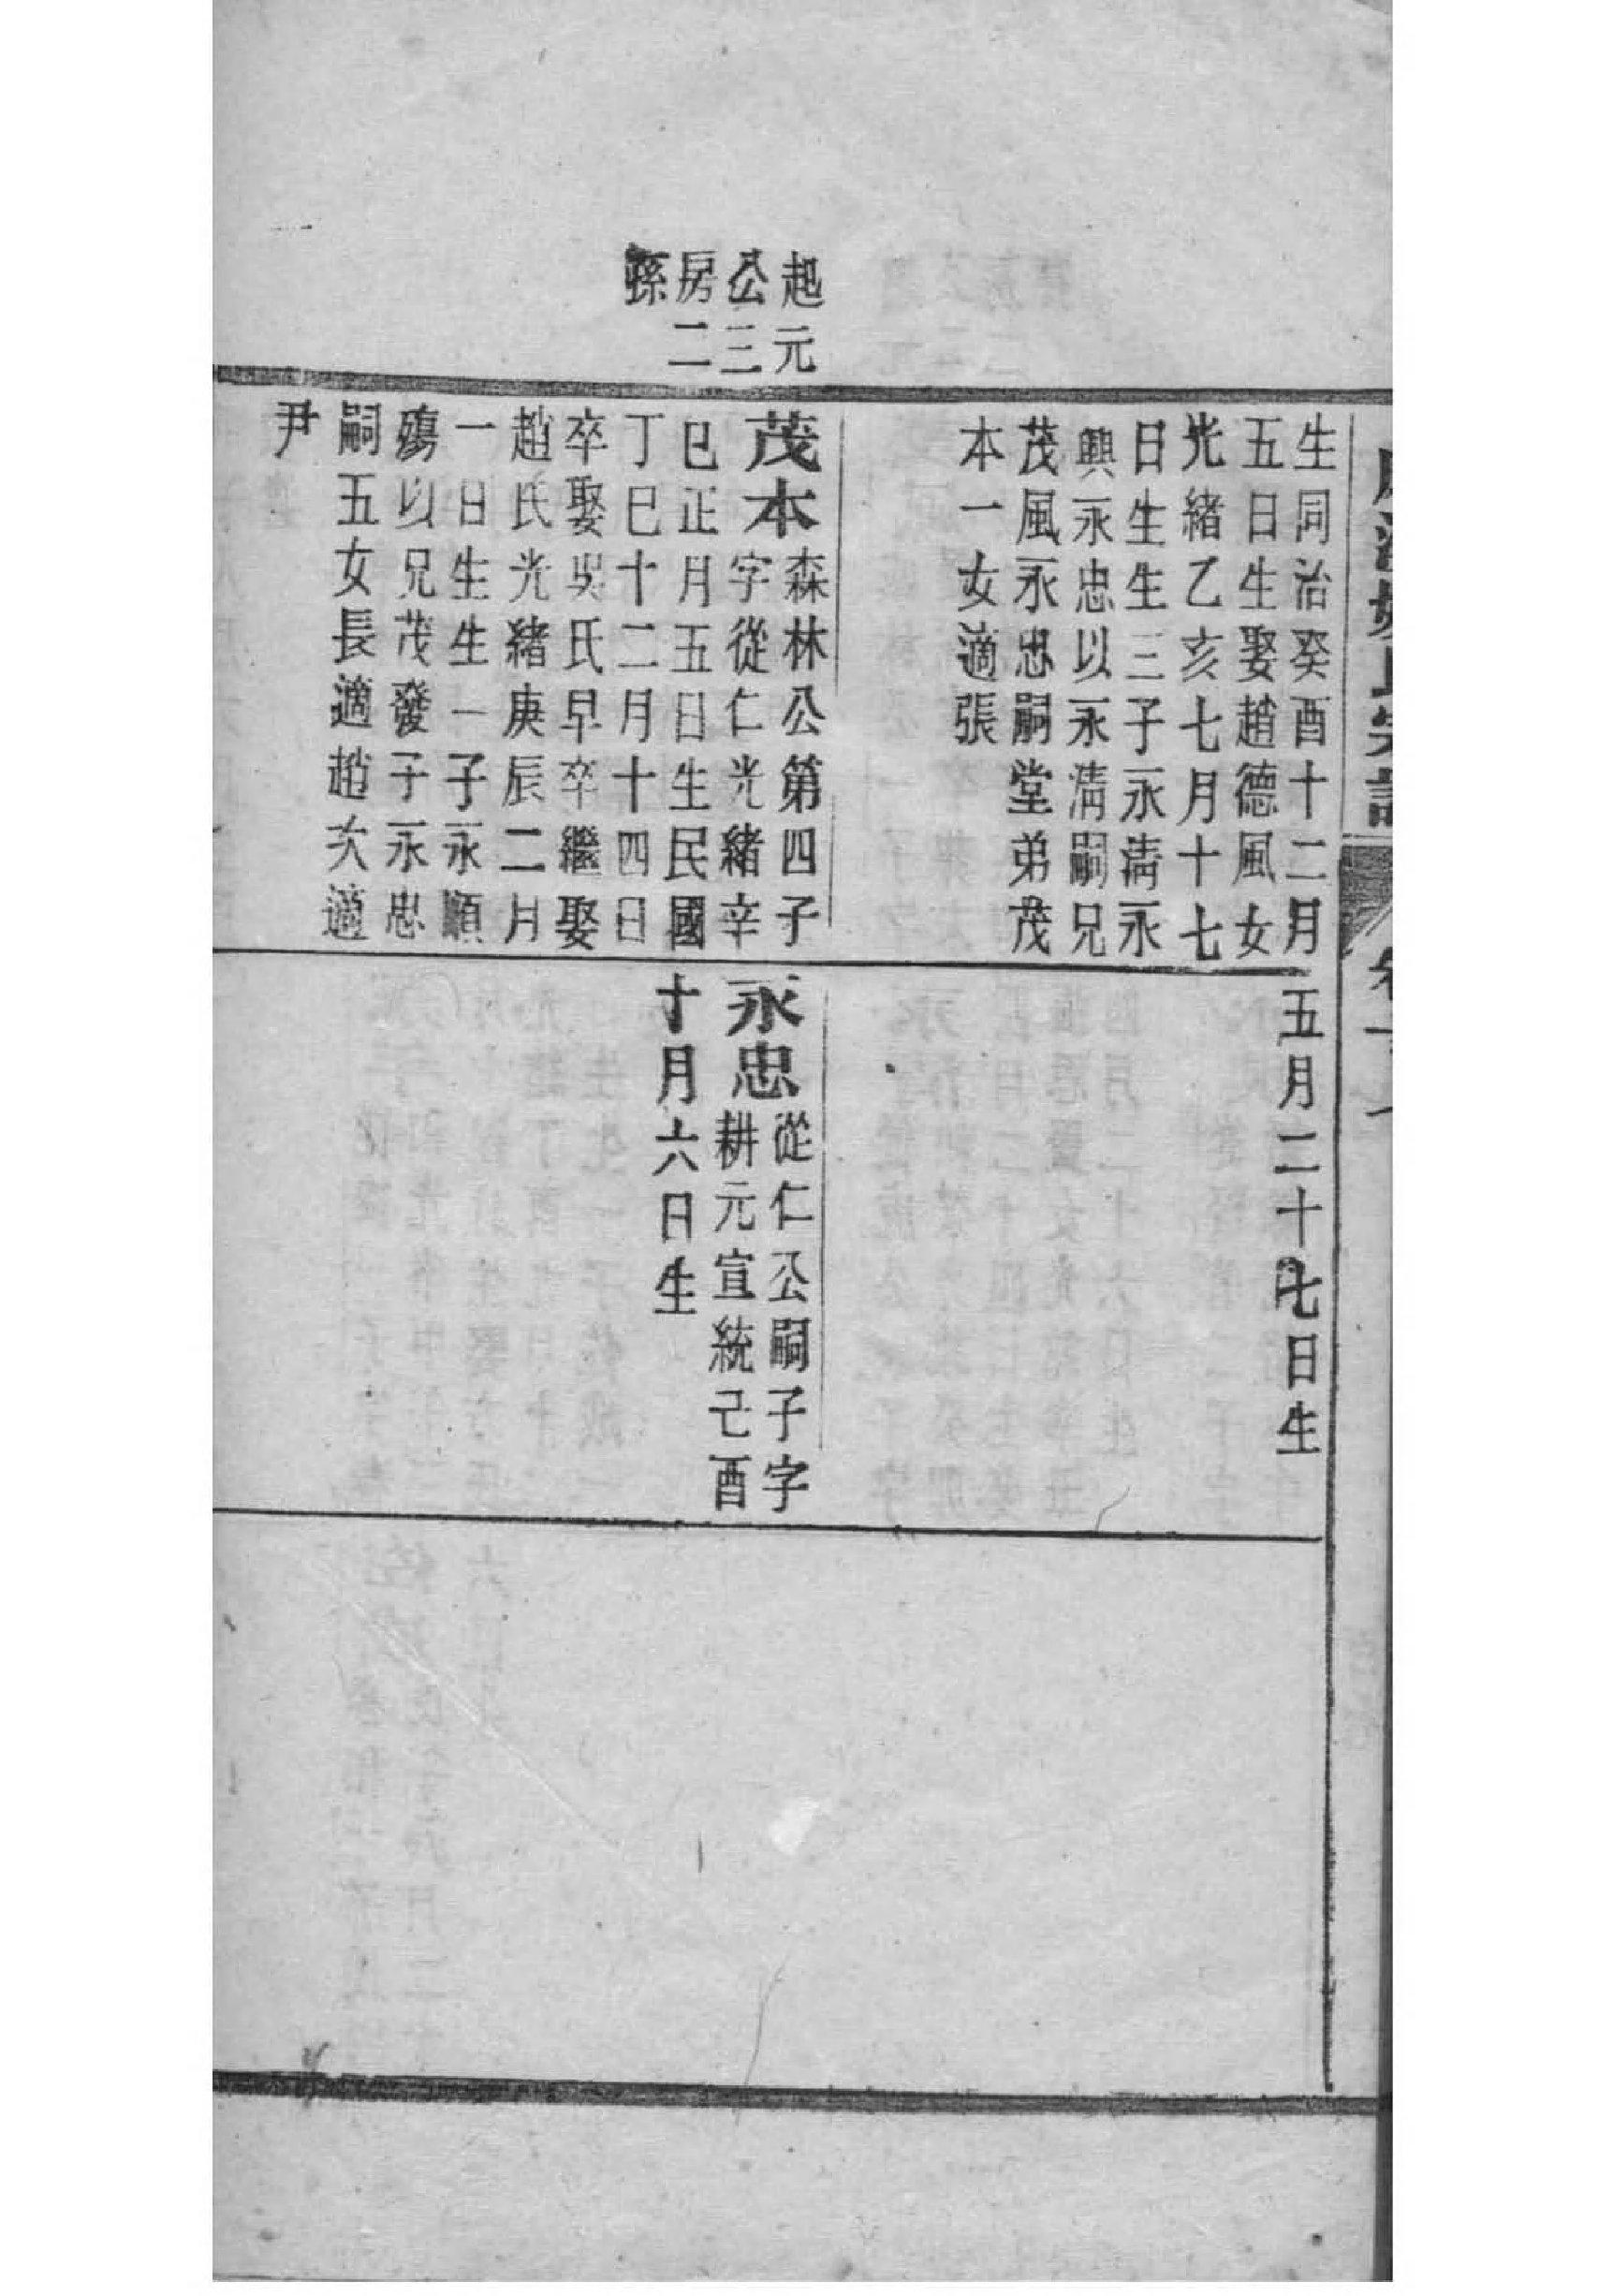 起元
公三
房二
孫
生同治癸酉十二月
五日生娶趙德風女
光緒乙亥七月十七
日生生三子永清永
興永忠以永清嗣兄
茂風永忠嗣堂弟茂
本一女適張
茂本
森林公第四子
字從仁光緒辛
巳正月五日生民國
丁巳十二月十四日
卒娶吳氏早卒繼娶
趙氏光緒庚辰二月
一日生生一子永順
殤以兄茂發子永忠
嗣五女長適趙次適
尹
五月二十七日生
永忠
從仁公嗣子字
耕元宣統己酉
十月六日生